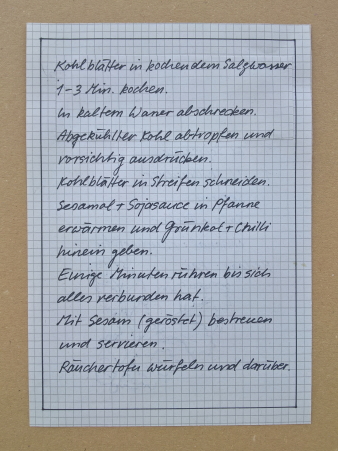 Kohlblätter in kochendem Salzwasser
1-3 Min. kochen.
In kaltem Wasser abschrecken.
Abgekühlter Kohl abtropfen und
vorsichtig ausdrücken.
Kohlblätter in Streifen schneiden.
Sesamöl + Sojasauce in Pfanne
erwärmen und Grünkol + Chilli
hinein geben.
Einige Minuten rühren bis sich
alles verbunden hat.
Mit Sesam (geröstet) bestreuen
und servieren.
Räuchertofu würfeln und darüber.